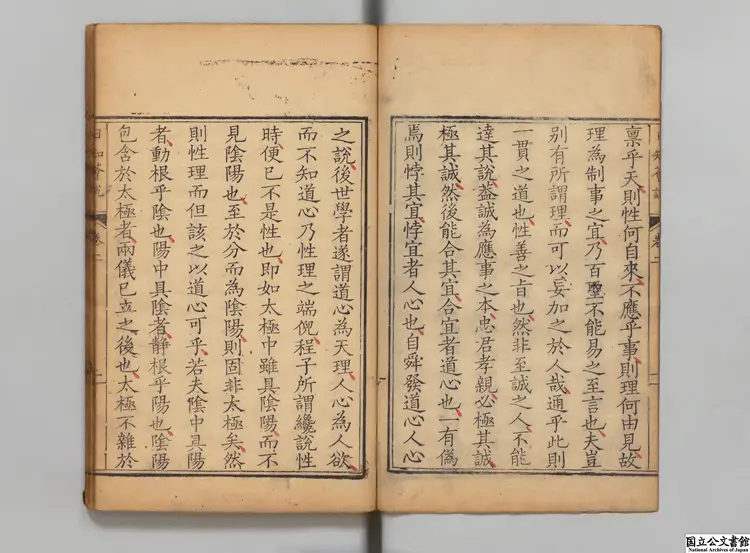 稟乎天則性何自來不應乎事則理何由見故
理為制事之宜乃百聖不能易之至言也夫豈
別有所謂理而可以妄加之於人哉通乎此則
一貫之道也性善之旨也然非至誠之人不能
達其說葢誠為應事之本忠君孝親必極其誠
極其誠然後能合其宜合宜者道心也一有偽
焉則悖其宜悖宜者人心也自舜發道心人心
之說後世學者遂謂道心為天理人心為人欲
而不知道心乃性理之端倪程子所謂纔說性
時便已不是性也即如太極中雖具陰陽而不
見陰陽也至於分而為陰陽則固非太極矣然
則性理而但該之以道心可乎若夫陰中具陽
者動根乎陰也陽中具陰者靜根乎陽也陰陽
包含於太極者兩儀已立之後也太極不雜於
卷二
卷二
国立公文書館
National Archives of Japan